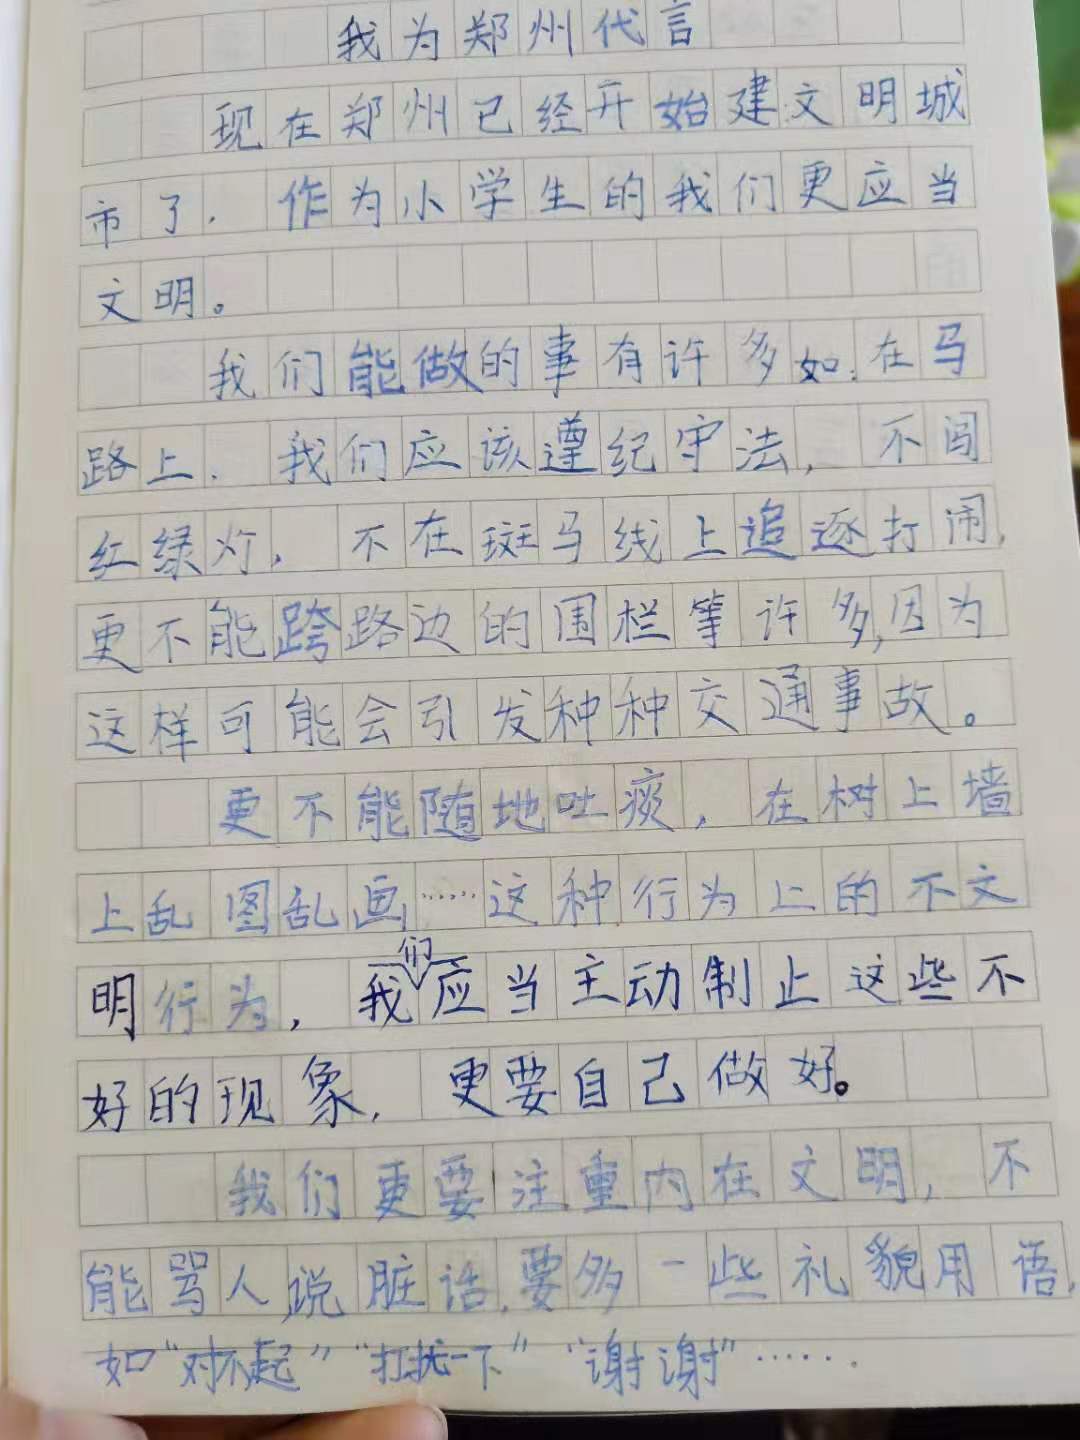 我为郑州代言
现在郑州已经开始建文明城
市了. 作为小学生的我们更应当
文明。
我们能做的事有许多如:在马
路上. 我们应该遵纪守法, 不闯
红绿灯, 不在斑马线上追逐打闹,
更不能跨路边的围栏等许多,因为
这样可能会引发种种交通事故。
更不能随地吐痰, 在树上墙
上乱图乱画……这种行为上的不文
明行为, 我们应当主动制止这些不
好的现象, 更要自己做好。
我们更要注重内在文明, 不
能骂人说脏话,要多一些礼貌用语,
如“对不起”“打扰一下”“谢谢”……